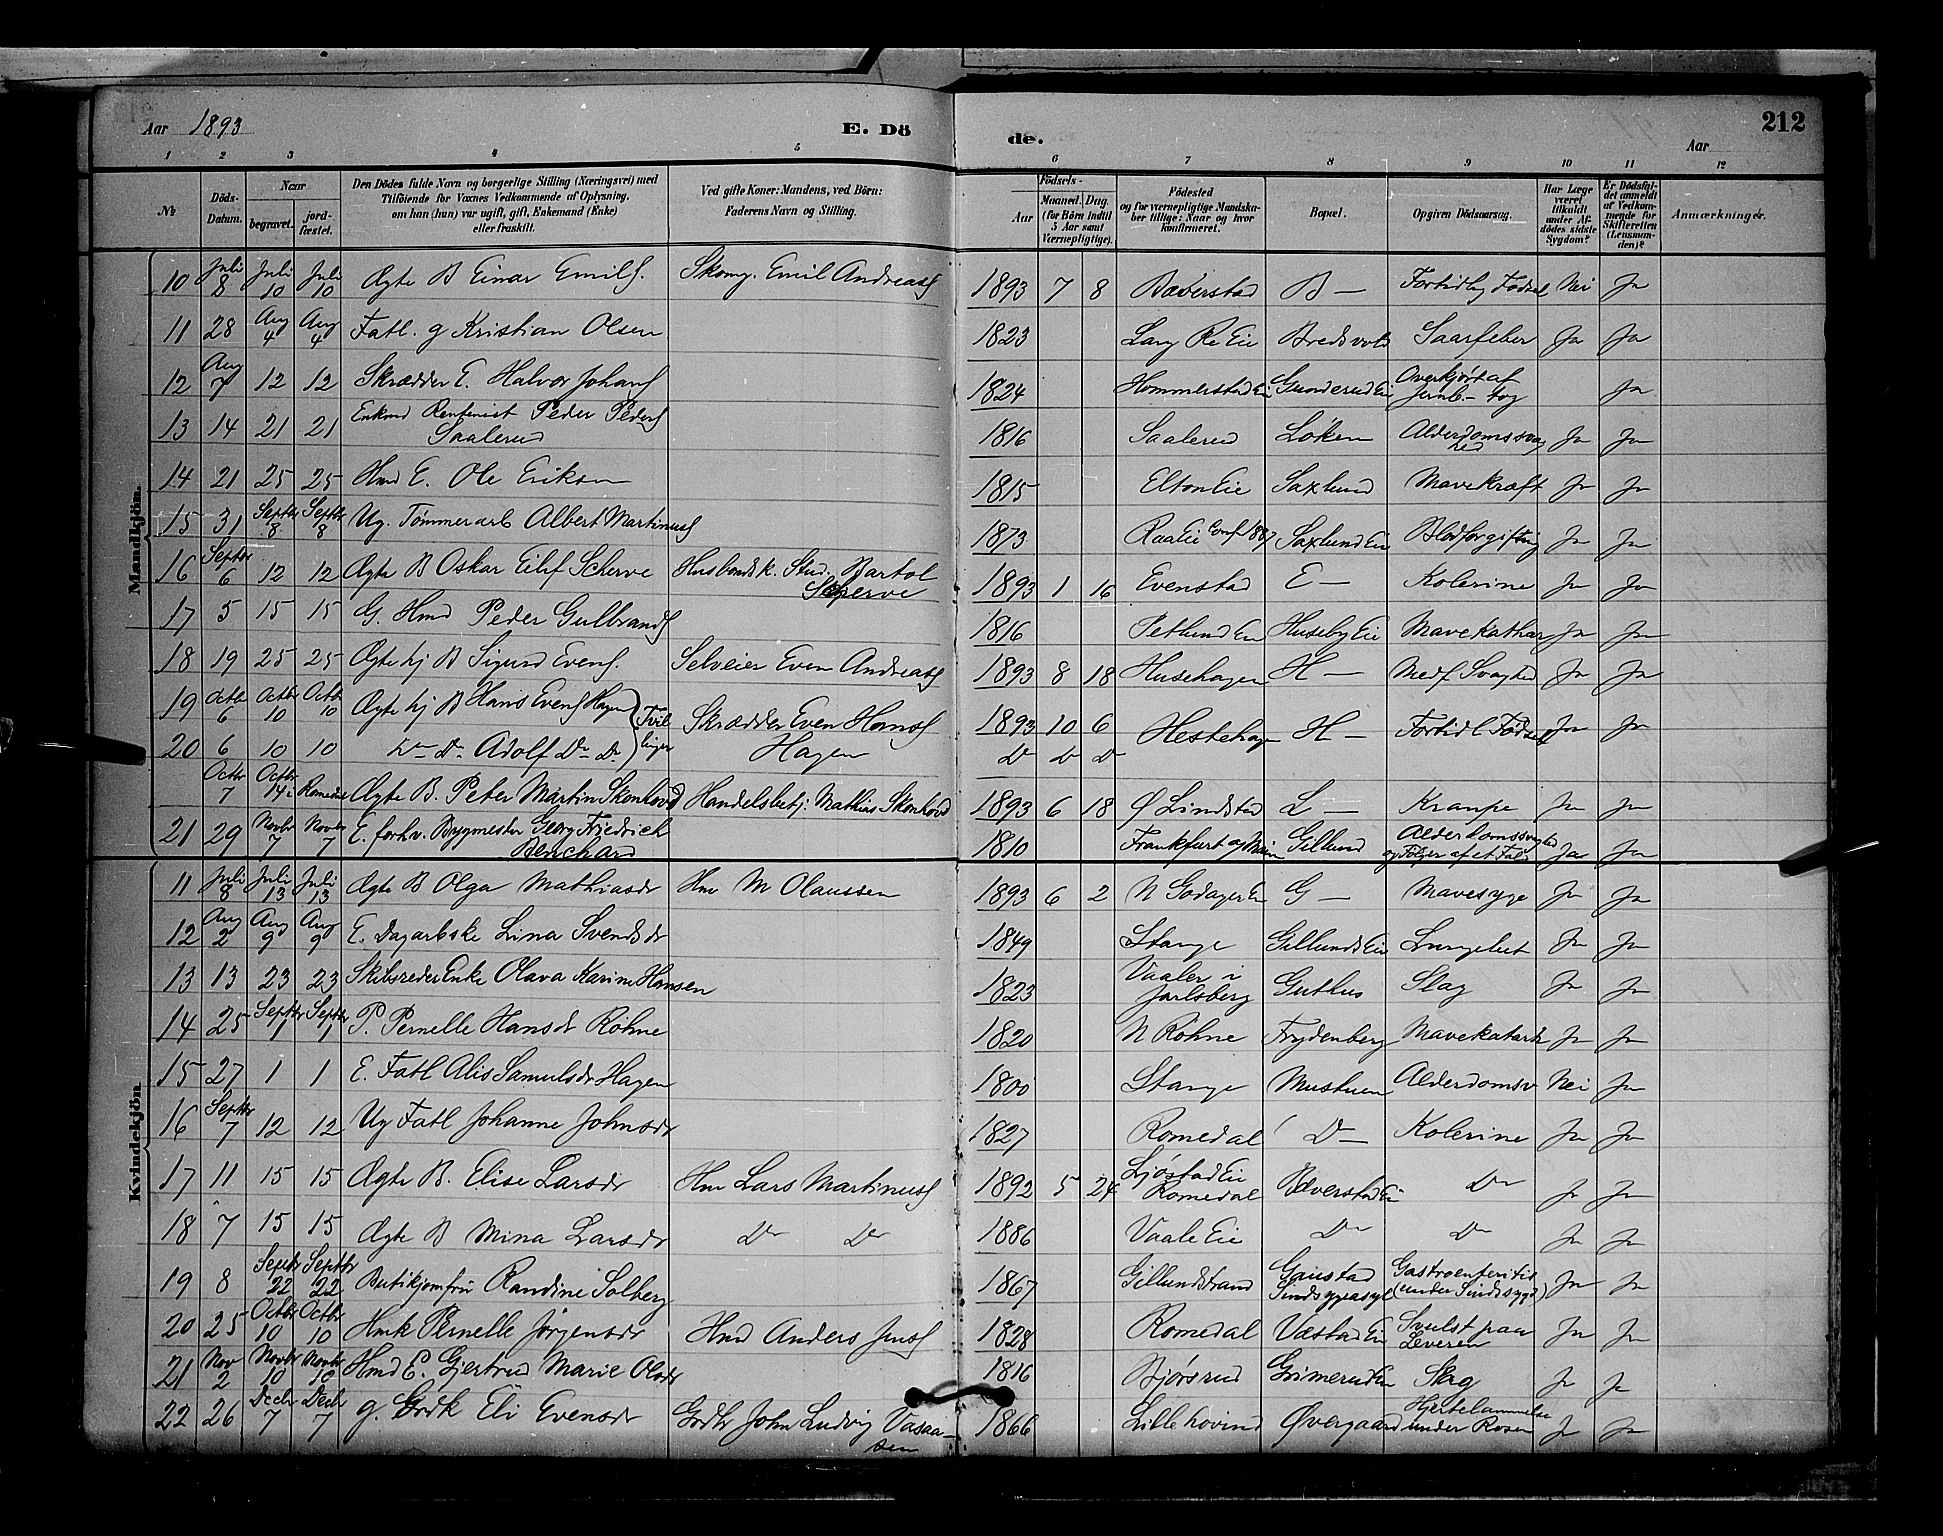 Aar 1893
E. Dö
de.
Aar
212
1 2 3 4 5 6 7 8 9 10 11 12
№ Döds-Datum. Naar begravet. jord-fæstet. Den Dödes fulde Navn og borgerlige Stilling (Næringsvei) med Tilföiende for Voxnes Vedkommende af Oplysning, om han (hun) var ugift, gift, Enkemand (Enke) eller fraskilt. Ved gifte Koner: Mandens, ved Börn: Faderens Navn og Stilling. Födsels- Aar Maaned. Dag. (for Börn indtil 5 Aar samt Værnepligtige). Födested og for værnepligtige Mandskaber tillige: Naar og hvor konfirmeret. Bopæl. Opgiven Dödsaarsag. Har Læge været tilkaldt under Afdödes sidste Sygdom? Er Dödsfaldet anmeldt af Vedkommende for Skifteretten (Lensmanden)? Anmærkninger.
Mandkjön.
10 Juli 8 Juli 10 Juli 10 Ægte B Einar Emils. Skomg. Emil Andreass 1893 7 8 Bæverstad B — Fortidlig Fødsel Nei Ja
11 28 Aug 4 Aug 4 Fatl. g Kristian Olsen 1823 Lang Re Eie Bredsvold Saarfeber Ja Ja
12 Aug 7 12 12 Skrædder E. Halvor Johans 1824 Hommerstad Ei Gunderud Ei Overkjørt af Jernb.- tog Ja
13 14 21 21 Enkmd Rentenist Peder Peders Saalerud 1816 Saalerud Løken Alderdomssvaghed Ja Ja
14 21 25 25 Hmd E. Ole Eriksen 1815 Elton Eie Saxlund Mavekræft Ja Ja
15 31 Septbr 8 Septbr 8 Ug. Tømmerarb Albert Martinuss 1873 Raa Eie Conf 1887 Saxlund Eie Blodforgiftnig Ja Ja
16 Septbr 6 12 12 Ægte B Oskar Eilif Scherve Husbondsk. Stud. Bartol Scherve 1893 1 16 Evenstad E — Kolerine Ja Ja
17 5 15 15 G. Hmd Peder Gulbrands 1816 Petlund En Huseby Eie Mavekathar Ja Ja
18 19 25 25 Ægte hj B Sigurd Evens. Selveier Even Andreass 1893 8 18 Husehagen H — Medf. Svaghed Ja Ja
19 Octbr 6 Octbr 10 Octbr 10 Ægte hj B Hans Evens Hagen Tvil- Skrædder Even Hanss 1893 10 6 Hestehagen H — Fortidl Fødsel Ja Ja
20 6 10 10 Do Do Adolf Do Do linger Hagen D D D
Octbr 7 Octbr 14 i Romedal Ægte B. Peter Martin Skonhovd Handelsbetj: Mathias Skonhovd 1893 6 18 Ø Lindstad L — Krampe Ja Ja
21 29 Novbr 7 Novbr 7 E. forhv. Bygmester Georg Friedrich Benchard 1810 Frankfurt a/Main Gillund Alderdomssvaghed og Følger af et Fald Ja Ja
Kvindekjön
11 Juli 8 Juli 13 Juli 13 Ægte B Olga Mathiasdr Hm M Olaussen 1893 6 2 N Godager Ei G — Mavesyge Ja Ja
12 Aug 2 Aug 9 Aug 9 E. Dagarbske Lina Svendsdr 1849 Stange Gillunds Eie Lungebet Ja Ja
13 13 23 23 Skibsreder Enke Olava Karine Hansen 1823 Vaaler i Jarlsberg Guthus Slag Ja Ja
14 25 Septbr 1 Septbr 1 P. Pernelle Hansdr Röhne 1820 N Röhne Frydenberg Mavekatarh Ja Ja
15 27 1 1 E. Fatl Alis Samuelsdr Hagen 1800 Stange Mustuen Alderdomsv Nei Ja
16 Septbr 7 12 12 Ug Fatl Johanne Johnsdr 1827 Romedal Do — Kolerine Ja Ja
17 11 15 15 Ægte B. Elise Larsdr Hm Lars Martinuss 1892 5 24 Ljøstad Ei Romedal Bæverstad Ei Do Ja Ja
18 7 15 15 Ægte B Mina Larsdr Do Do 1886 Vaale Eie Do Do Ja Ja
19 8 Septbr 22 Septbr 22 Butikjomfru Randine Solberg 1867 Gillundstrand Gaustad Sindssygeasyl Gastroenteritis (under Sindssygd) Ja Ja
20 25 Octbr 10 Octbr 10 Hmk Pernelle Jørgensdr Hmd Anders Jenss 1828 Romedal Væstad Ei Svulst paa Leveren Ja Ja
21 Nov 2 Novbr 10 Novbr 10 Hmd E. Gjertrud Marie Olsdr 1816 Bjørsrud Grimerud Ei Slag Ja Ja
22 26 Decbr 7 Decbr 7 g. Grdk Eli Evensdr Grdbr John Ludvig Vasaasen 1866 Lille hovind Øvergaard Hjertelammelse under Rosen Ja Ja